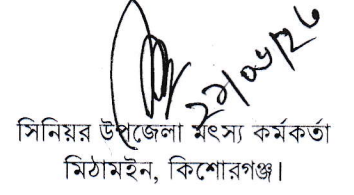 সিনিয়র উপজেলা মৎস্য কর্মকর্তা
মিঠামইন, কিশোরগঞ্জ।